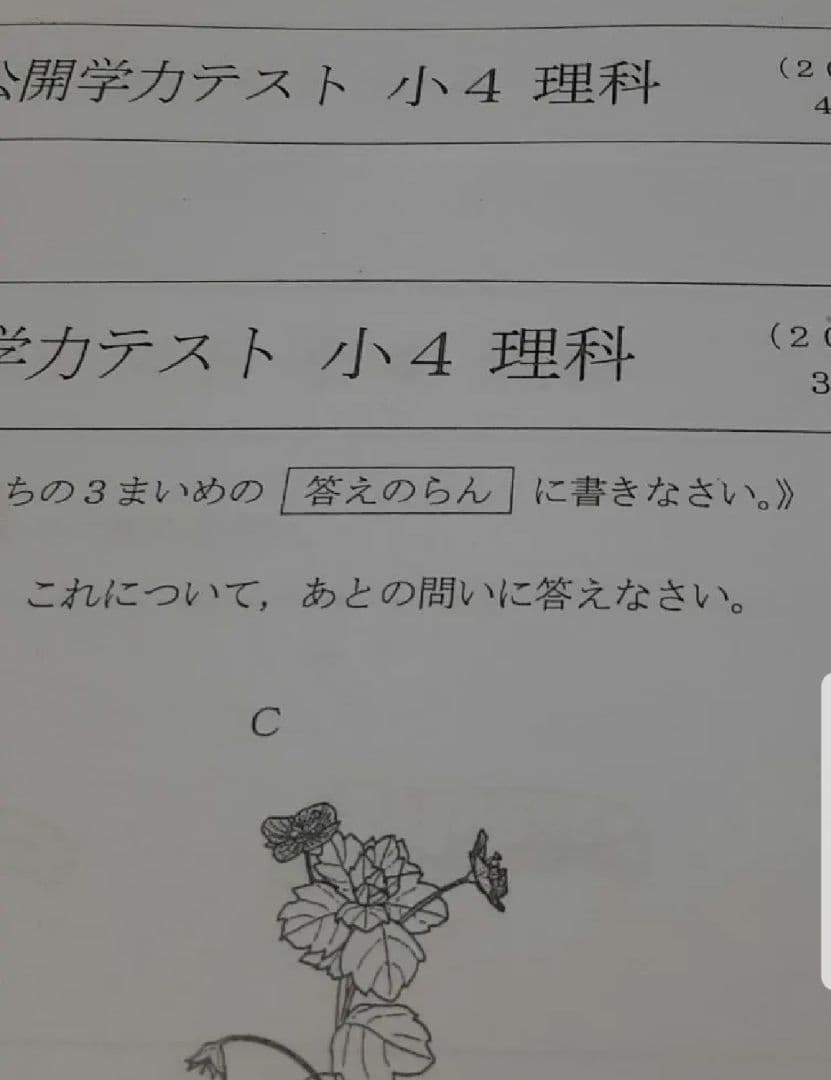 公開学力テスト 小4 理科
(20
4
学力テスト 小4 理科
(20
3
ちの3まいめの 答えのらん に書きなさい。》
これについて，あとの問いに答えなさい。
C